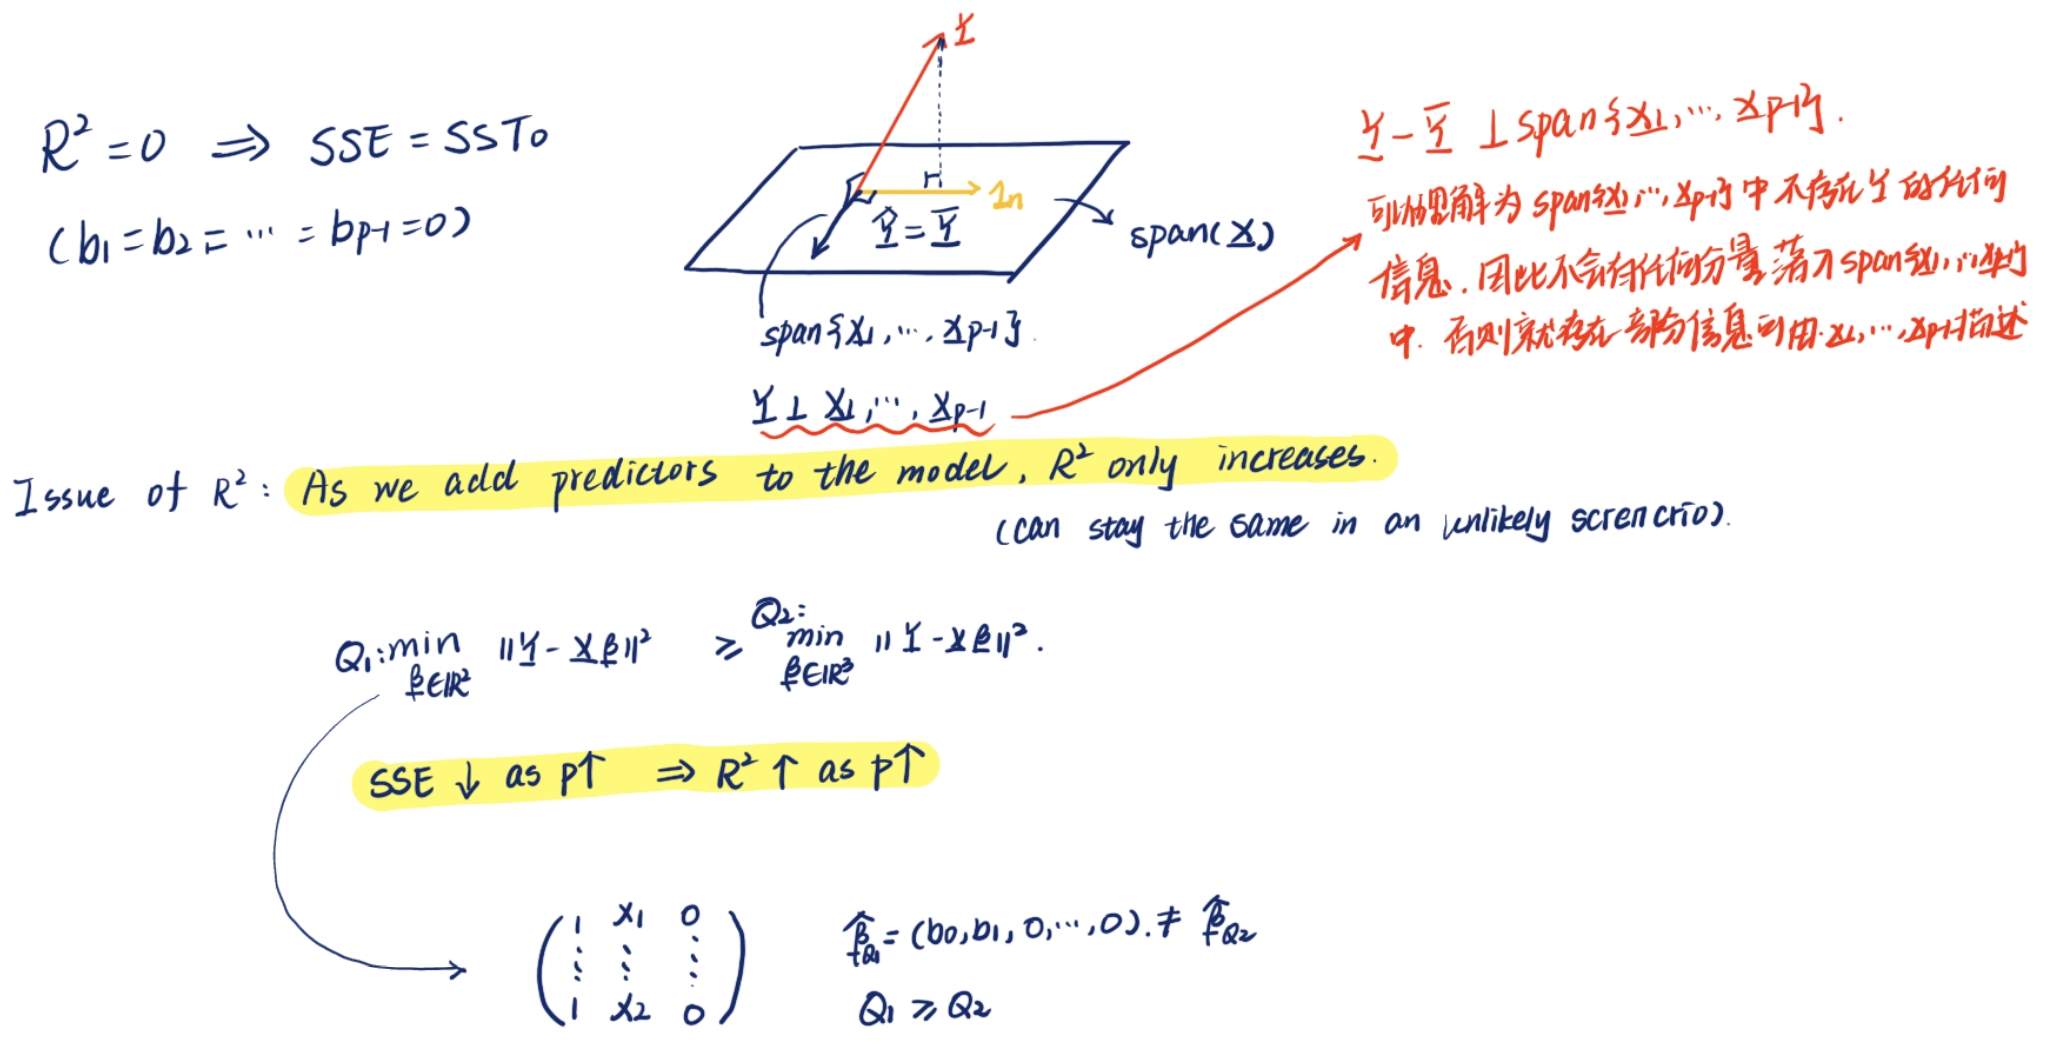 R² = 0 ⇒ SSE = SSTo
(b₁ = b₂ = ⋯ = b_{p-1} = 0)
Y
1n
Ŷ = Ȳ
span(X)
span{X₁, ⋯, X_{p-1}}.
Y ⊥ X₁, ⋯, X_{p-1}
Y - Ȳ ⊥ span{X₁, ⋯, X_{p-1}}.
可以理解为 span{X₁, ⋯, X_{p-1}} 中不存在 Y 的任何
信息. 因此不会有任何分量落于 span{X₁, ⋯, X_{p-1}}
中. 否则就存在部分信息可由 X₁, ⋯, X_{p-1} 描述
Issue of R²: As we add predictors to the model, R² only increases.
(can stay the same in an unlikely
Q₁: min_{β∈ℝ²} ‖Y - Xβ‖² ≥ Q₂: min_{β∈ℝ³} ‖Y - Xβ‖².
SSE ↓ as p↑ ⇒ R² ↑ as p↑
1 X₁ 0
⋮ ⋮ ⋮
1 X₂ 0
β̂_{Q₁} = (b₀, b₁, 0, ⋯, 0). ≠ β̂_{Q₂}
Q₁ ≥ Q₂